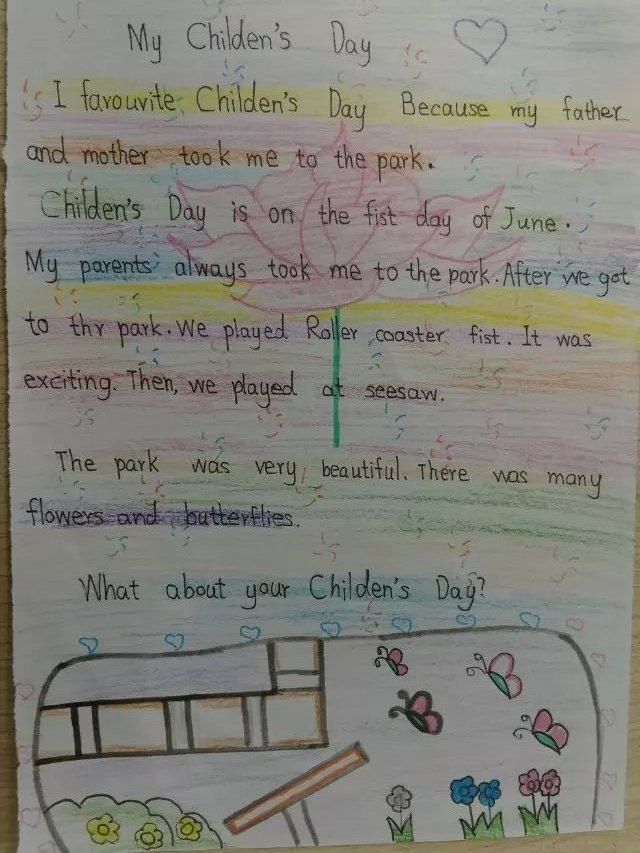 My Childen's Day
I favouvite Childen's Day Because my father
and mother took me to the park.
Childen's Day is on the fist day of June.
My parents always took me to the park. After we got
to thr park. We played Roller coaster fist. It was
exciting. Then, we played at seesaw.
The park was very beautiful. There was many
flowers and butterflies.
What about your Childen's Day?